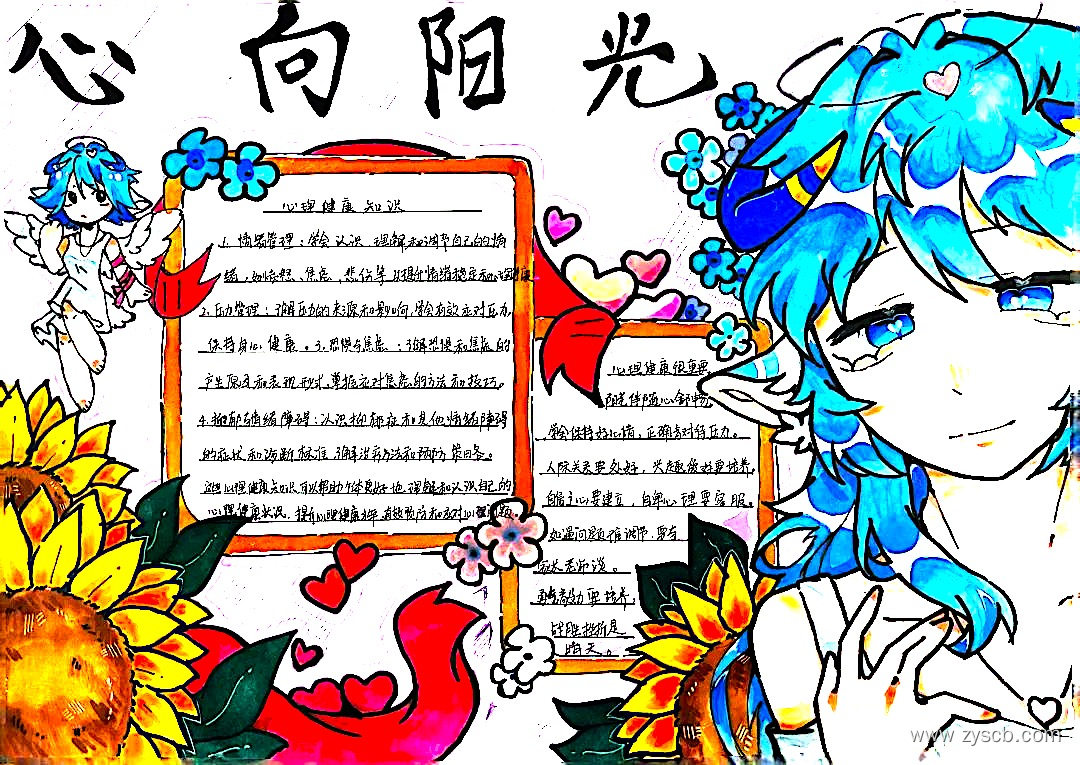 心向阳光
心理健康知识
1. 情绪管理：学会认识、理解和调节自己的情
绪，如愤怒、焦虑、悲伤等，以提升情绪稳定和心理健康
2. 压力管理：了解压力的来源和影响，学会有效应对压力，
保持身心健康。3. 恐惧与焦虑：了解恐惧和焦虑的
产生原因和表现形式，掌握应对焦虑的方法和技巧。
4. 抑郁与情绪障碍：认识抑郁症和其他情绪障碍
的症状和诊断标准，了解治疗方法和预防
这些心理健康知识可以帮助个体更好地理解和认识自己的
心理健康状况，提高心理健康水平，有效预防和应对心理问题
心理健康很重要
阳光伴随心舒畅
学会保持好心情，正确对待压力。
人际关系要处好，兴趣做好要培养。
自信之心要建立，自卑心理要客服。
如遇问题难调节，要与
家长老师谈。
要培养，
战胜挫折是
明天。
www.zyscb.com